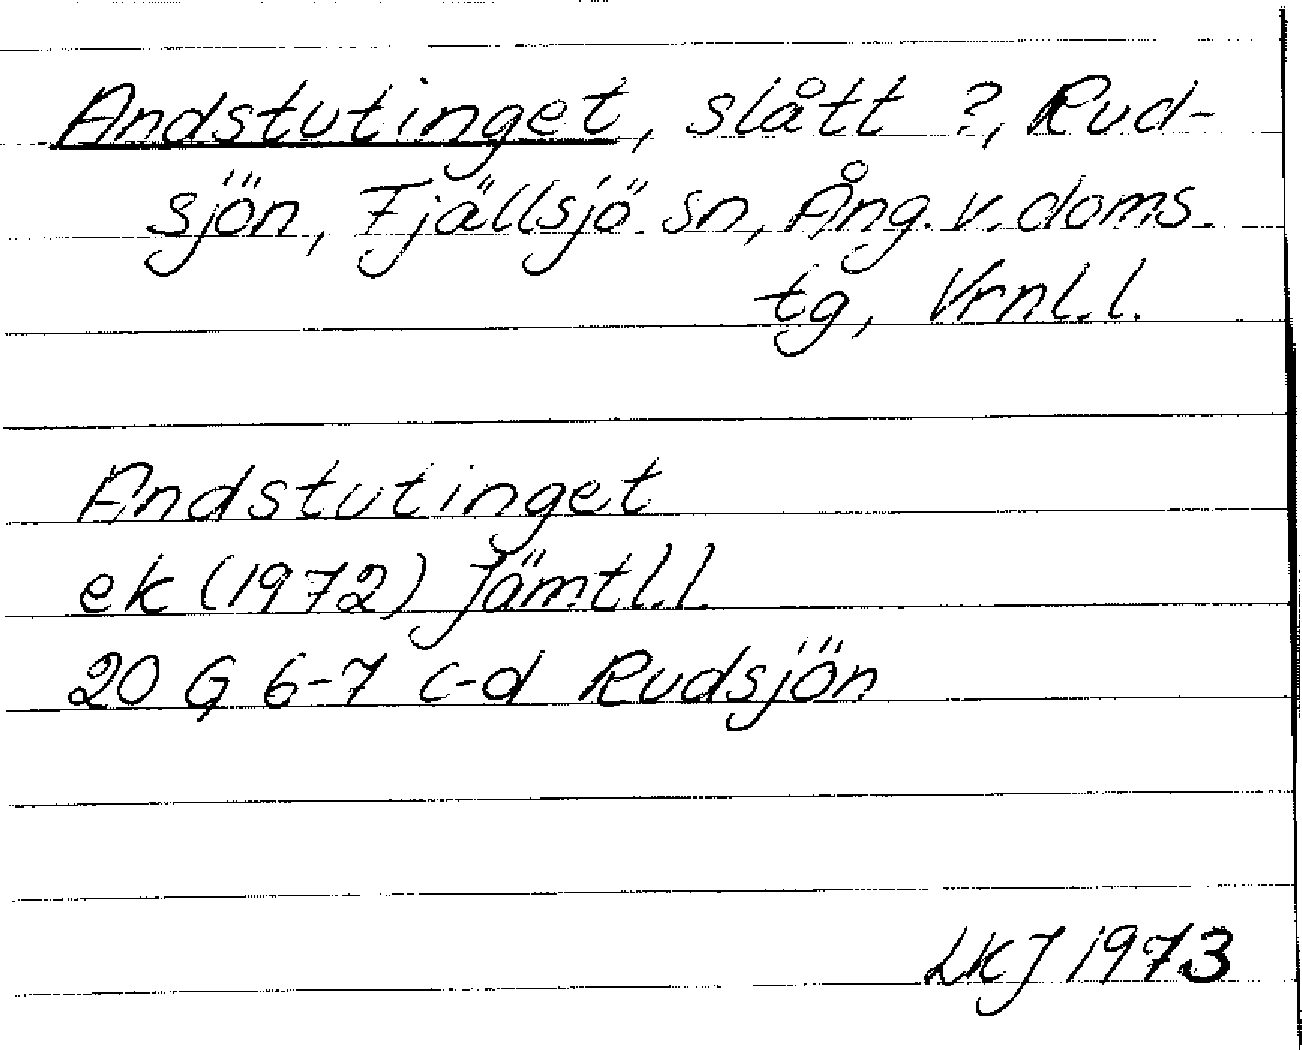 Andstutinget, slått ?, Rud-
sjön, Fjällsjö sn, Ång. v. doms.
tg, Vrnl.l.
Andstutinget
ek (1972) Jämtl.l.
20 G 6-7 c-d Rudsjön
LKJ 1973